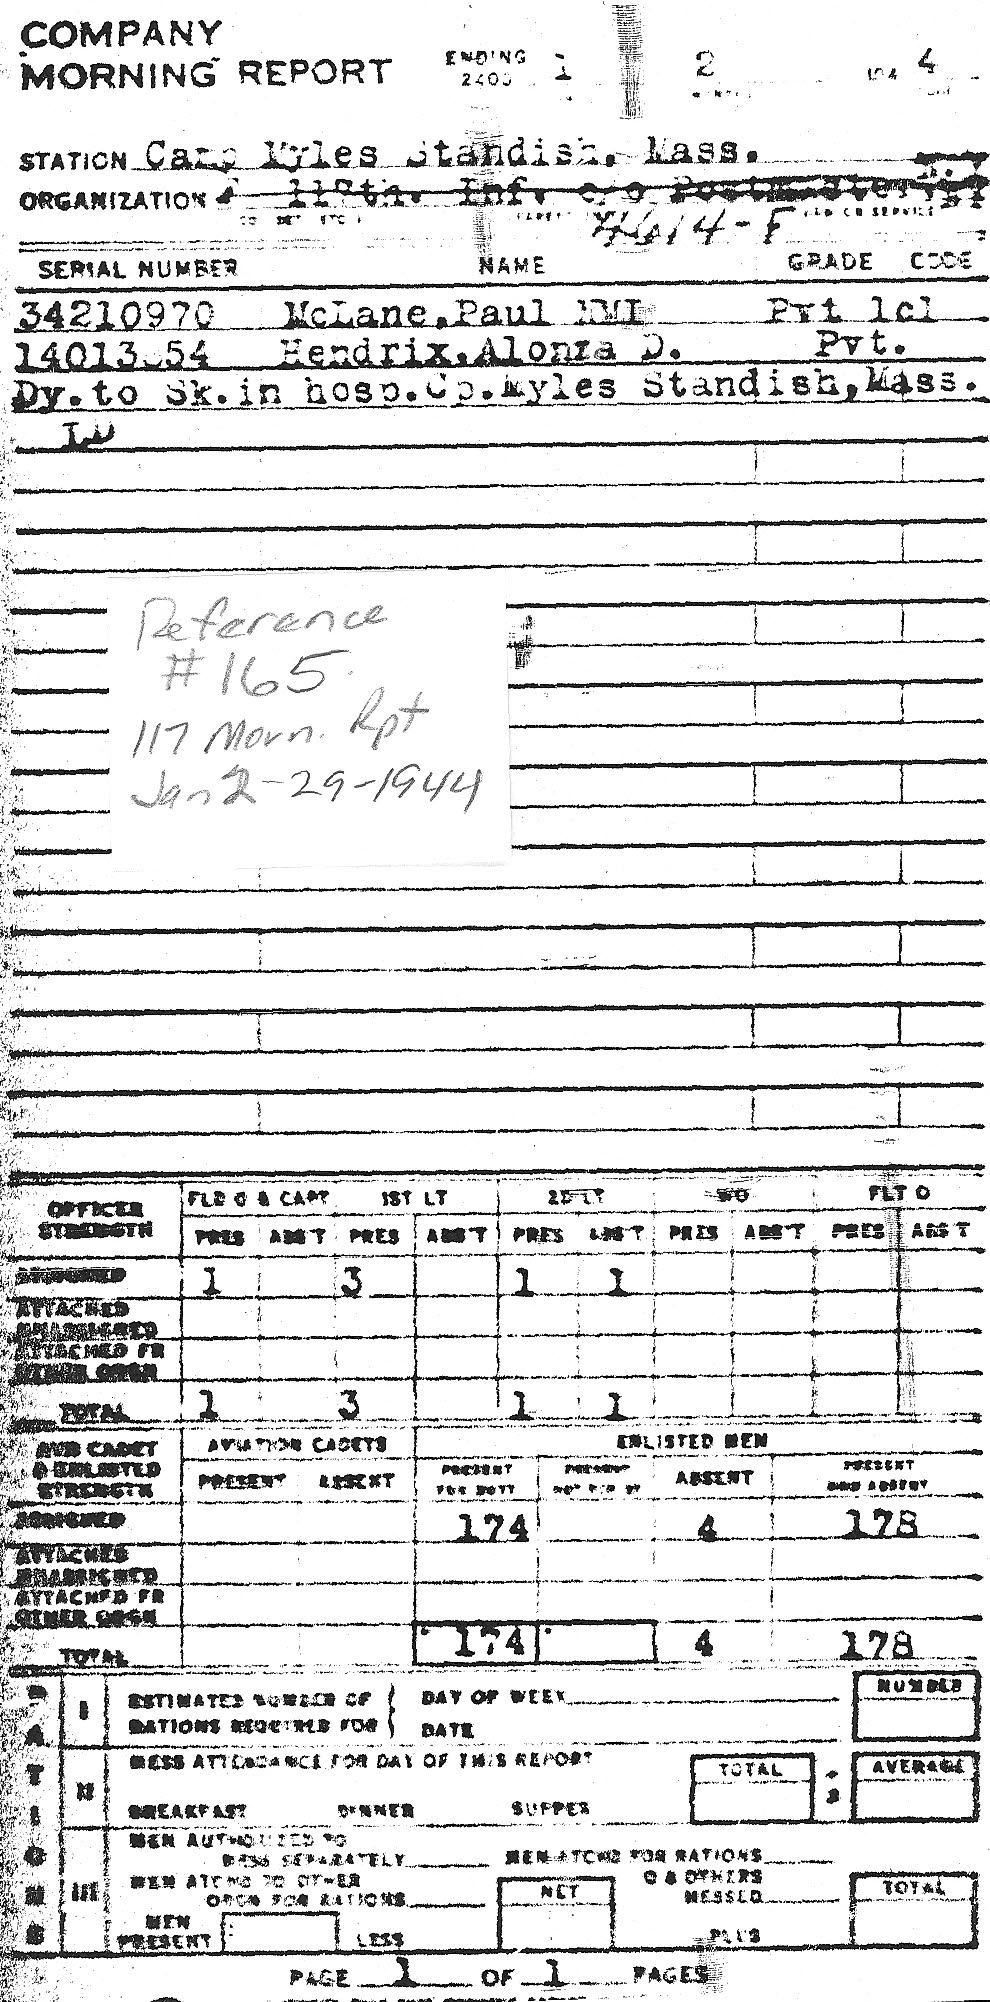 COMPANY
MORNING REPORT
ENDING 2400 1 2 194 4
STATION Camp Myles Standish, Mass.
ORGANIZATION 117th. Inf. c/o Postmaster,
SERIAL NUMBER NAME GRADE CODE
34210970 McLane,Paul NMI Pvt 1cl
Hendrix,Alonza D. Pvt.
Dy.to Sk.in hosp.Cp.Myles Standish,Mass.
LD
Reference
#165
117 Morn. Rpt
Jan 2-29-1944
OFFICER STRENGTH FLD O & CAPT 1ST LT 2D LT WO FLT O
PRES ABS'T PRES ABS'T PRES ABS'T PRES ABS'T PRES ABS'T
ASSIGNED 1 3 1 1
ATTACHED UNASSIGNED
ATTACHED FR OTHER ORGN
TOTAL 1 3 1 1
AVN CADET & ENLISTED STRENGTH AVIATION CADETS ENLISTED MEN
PRESENT ABSENT PRESENT FOR DUTY PRESENT NOT FOR DY ABSENT PRESENT AND ABSENT
ASSIGNED 174 4 178
ATTACHED UNASSIGNED
ATTACHED FR OTHER ORGN
TOTAL 174 4 178
RATIONS
I ESTIMATED NUMBER OF RATIONS REQUIRED FOR DAY OF WEEK NUMBER
DATE
II MESS ATTENDANCE FOR DAY OF THIS REPORT TOTAL AVERAGE
BREAKFAST DINNER SUPPER
III MEN AUTHORIZED TO MESS SEPARATELY MEN ATCHD FOR RATIONS
MEN ATCHD TO OTHER ORGN FOR RATIONS NET O & OTHERS MESSED TOTAL
MEN PRESENT LESS PLUS
PAGE 1 OF 1 PAGES